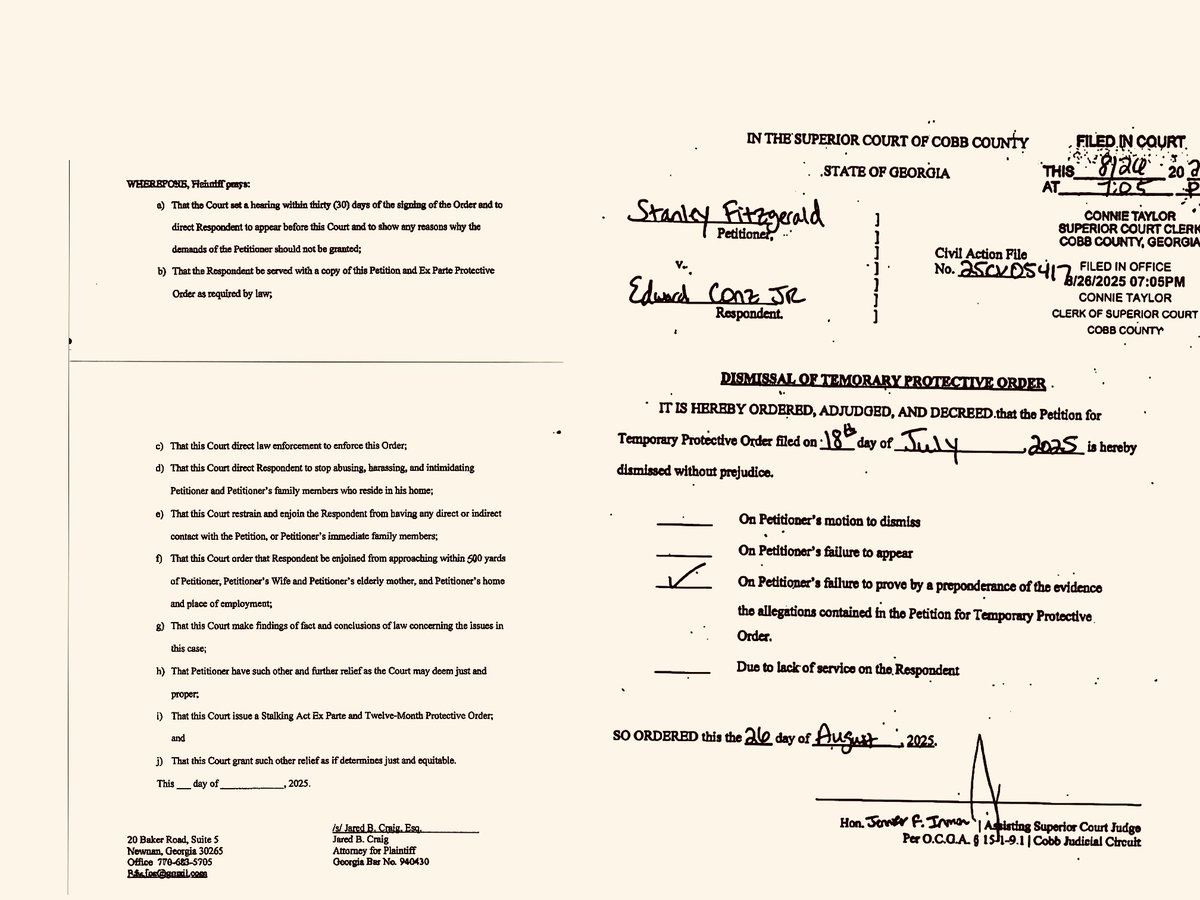 WHEREFONE, Plaintiff prays:
a) That the Court set a hearing within thirty (30) days of the signing of the Order and to
direct Respondent to appear before this Court and to show any reasons why the
demands of the Petitioner should not be granted;
b) That the Respondent be served with a copy of this Petition and Ex Parte Protective
Order as required by law;
c) That this Court direct law enforcement to enforce this Order;
d) That this Court direct Respondent to stop abusing, harassing, and intimidating
Petitioner and Petitioner's family members who reside in his home;
e) That this Court restrain and enjoin the Respondent from having any direct or indirect
contact with the Petition, or Petitioner's immediate family members;
f) That this Court order that Respondent be enjoined from approaching within 500 yards
of Petitioner, Petitioner's Wife and Petitioner's elderly mother, and Petitioner's home
and place of employment;
g) That this Court make findings of fact and conclusions of law concerning the issues in
this case;
h) That Petitioner have such other and further relief as the Court may deem just and
proper;
i) That this Court issue a Stalking Act Ex Parte and Twelve-Month Protective Order;
and
j) That this Court grant such other relief as if determines just and equitable.
This ___ day of ____________, 2025.
/s/ Jared B. Craig, Esq.
Jared B. Craig
Attorney for Plaintiff
Georgia Bar No. 940430
20 Baker Road, Suite 5
Newnan, Georgia 30265
Office 770-683-5705
IN THE SUPERIOR COURT OF COBB COUNTY
STATE OF GEORGIA
FILED IN COURT
THIS 8/26 20 2
AT 7:05 P
CONNIE TAYLOR
SUPERIOR COURT CLERK
COBB COUNTY, GEORGIA
FILED IN OFFICE
8/26/2025 07:05PM
CONNIE TAYLOR
CLERK OF SUPERIOR COURT
COBB COUNTY
Stanley Fitzgerald
Petitioner,
v.
Edward Conz JR
Respondent.
]
]
]
]
]
]
]
Civil Action File
No. 25CV05417
DISMISSAL OF TEMORARY PROTECTIVE ORDER
IT IS HEREBY ORDERED, ADJUDGED, AND DECREED that the Petition for
Temporary Protective Order filed on 18th day of July, 2025 is hereby
dismissed without prejudice.
______ On Petitioner's motion to dismiss
______ On Petitioner's failure to appear
✓ On Petitioner's failure to prove by a preponderance of the evidence
the allegations contained in the Petition for Temporary Protective
Order.
______ Due to lack of service on the Respondent
SO ORDERED this the 26 day of August, 2025.
Hon. F. Inman | Assisting Superior Court Judge
Per O.C.G.A. § 15-1-9.1 | Cobb Judicial Circuit